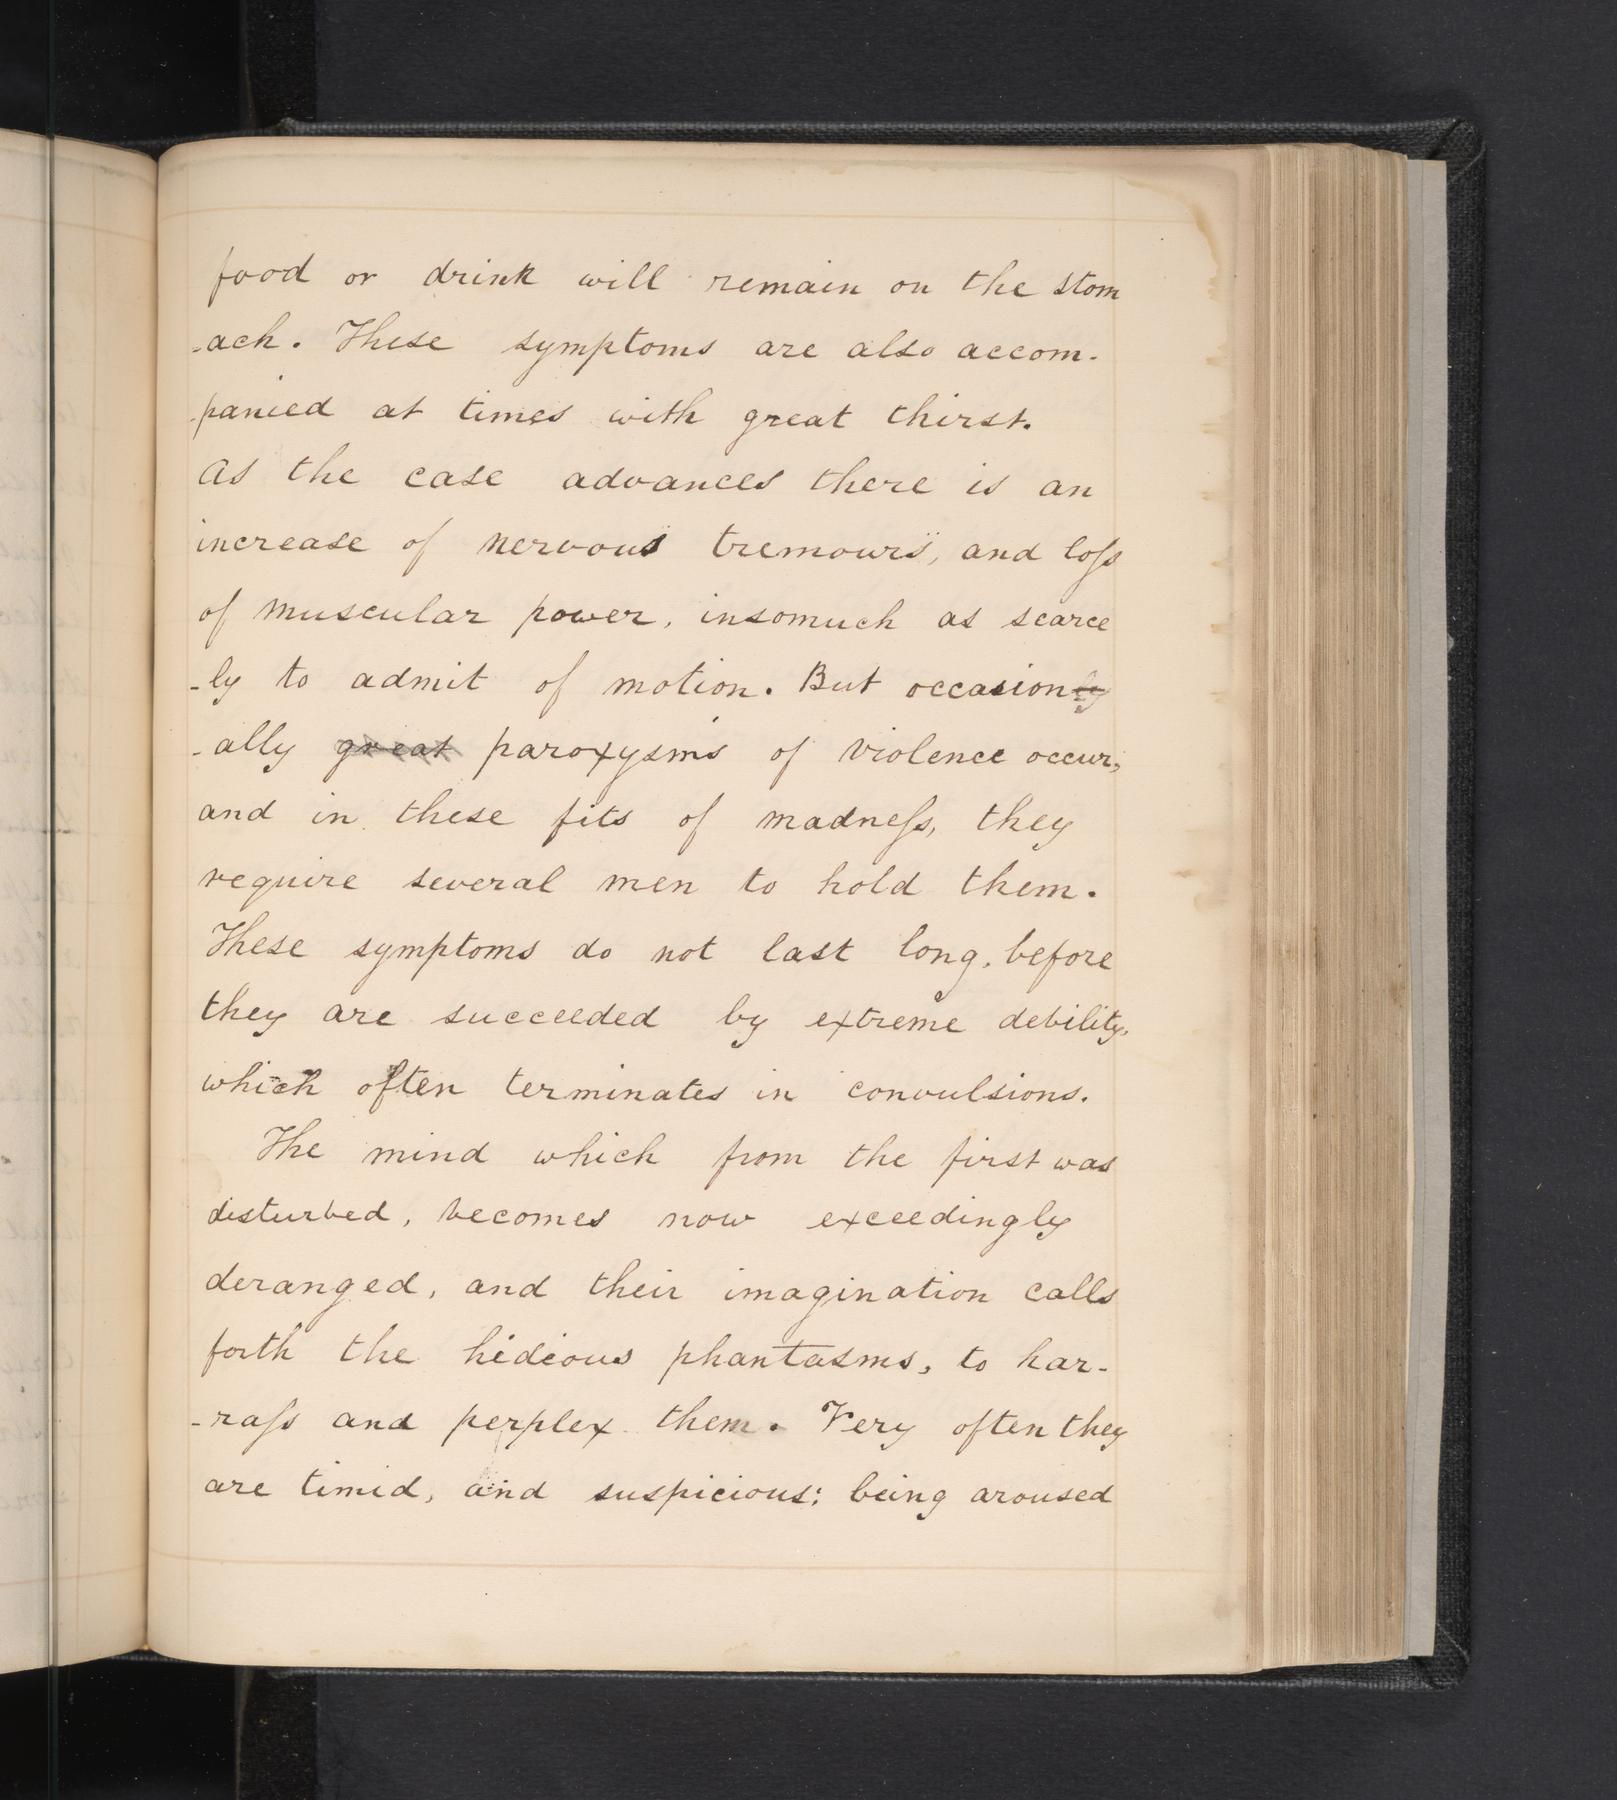 food or drink will remain on the stom
-ach. These symptoms are also accom-
-panied at times with great thirst.
As the case advances there is an
increase of nervous tremours, and loſs
of muscular power, insomuch as scarce
-ly to admit of motion. But occasionly
-ally great paroxysms of violence occur,
and in these fits of madneſs, they
require several men to hold them.
These symptoms do not last long, before
they are succeeded by extreme debility,
which often terminates in convulsions.
The mind which from the first was
disturbed, becomes now exceedingly
deranged, and their imagination calls
forth the hideous phantasms, to har-
-raſs and perplex them. Very often they
are timid, and suspicious; being aroused